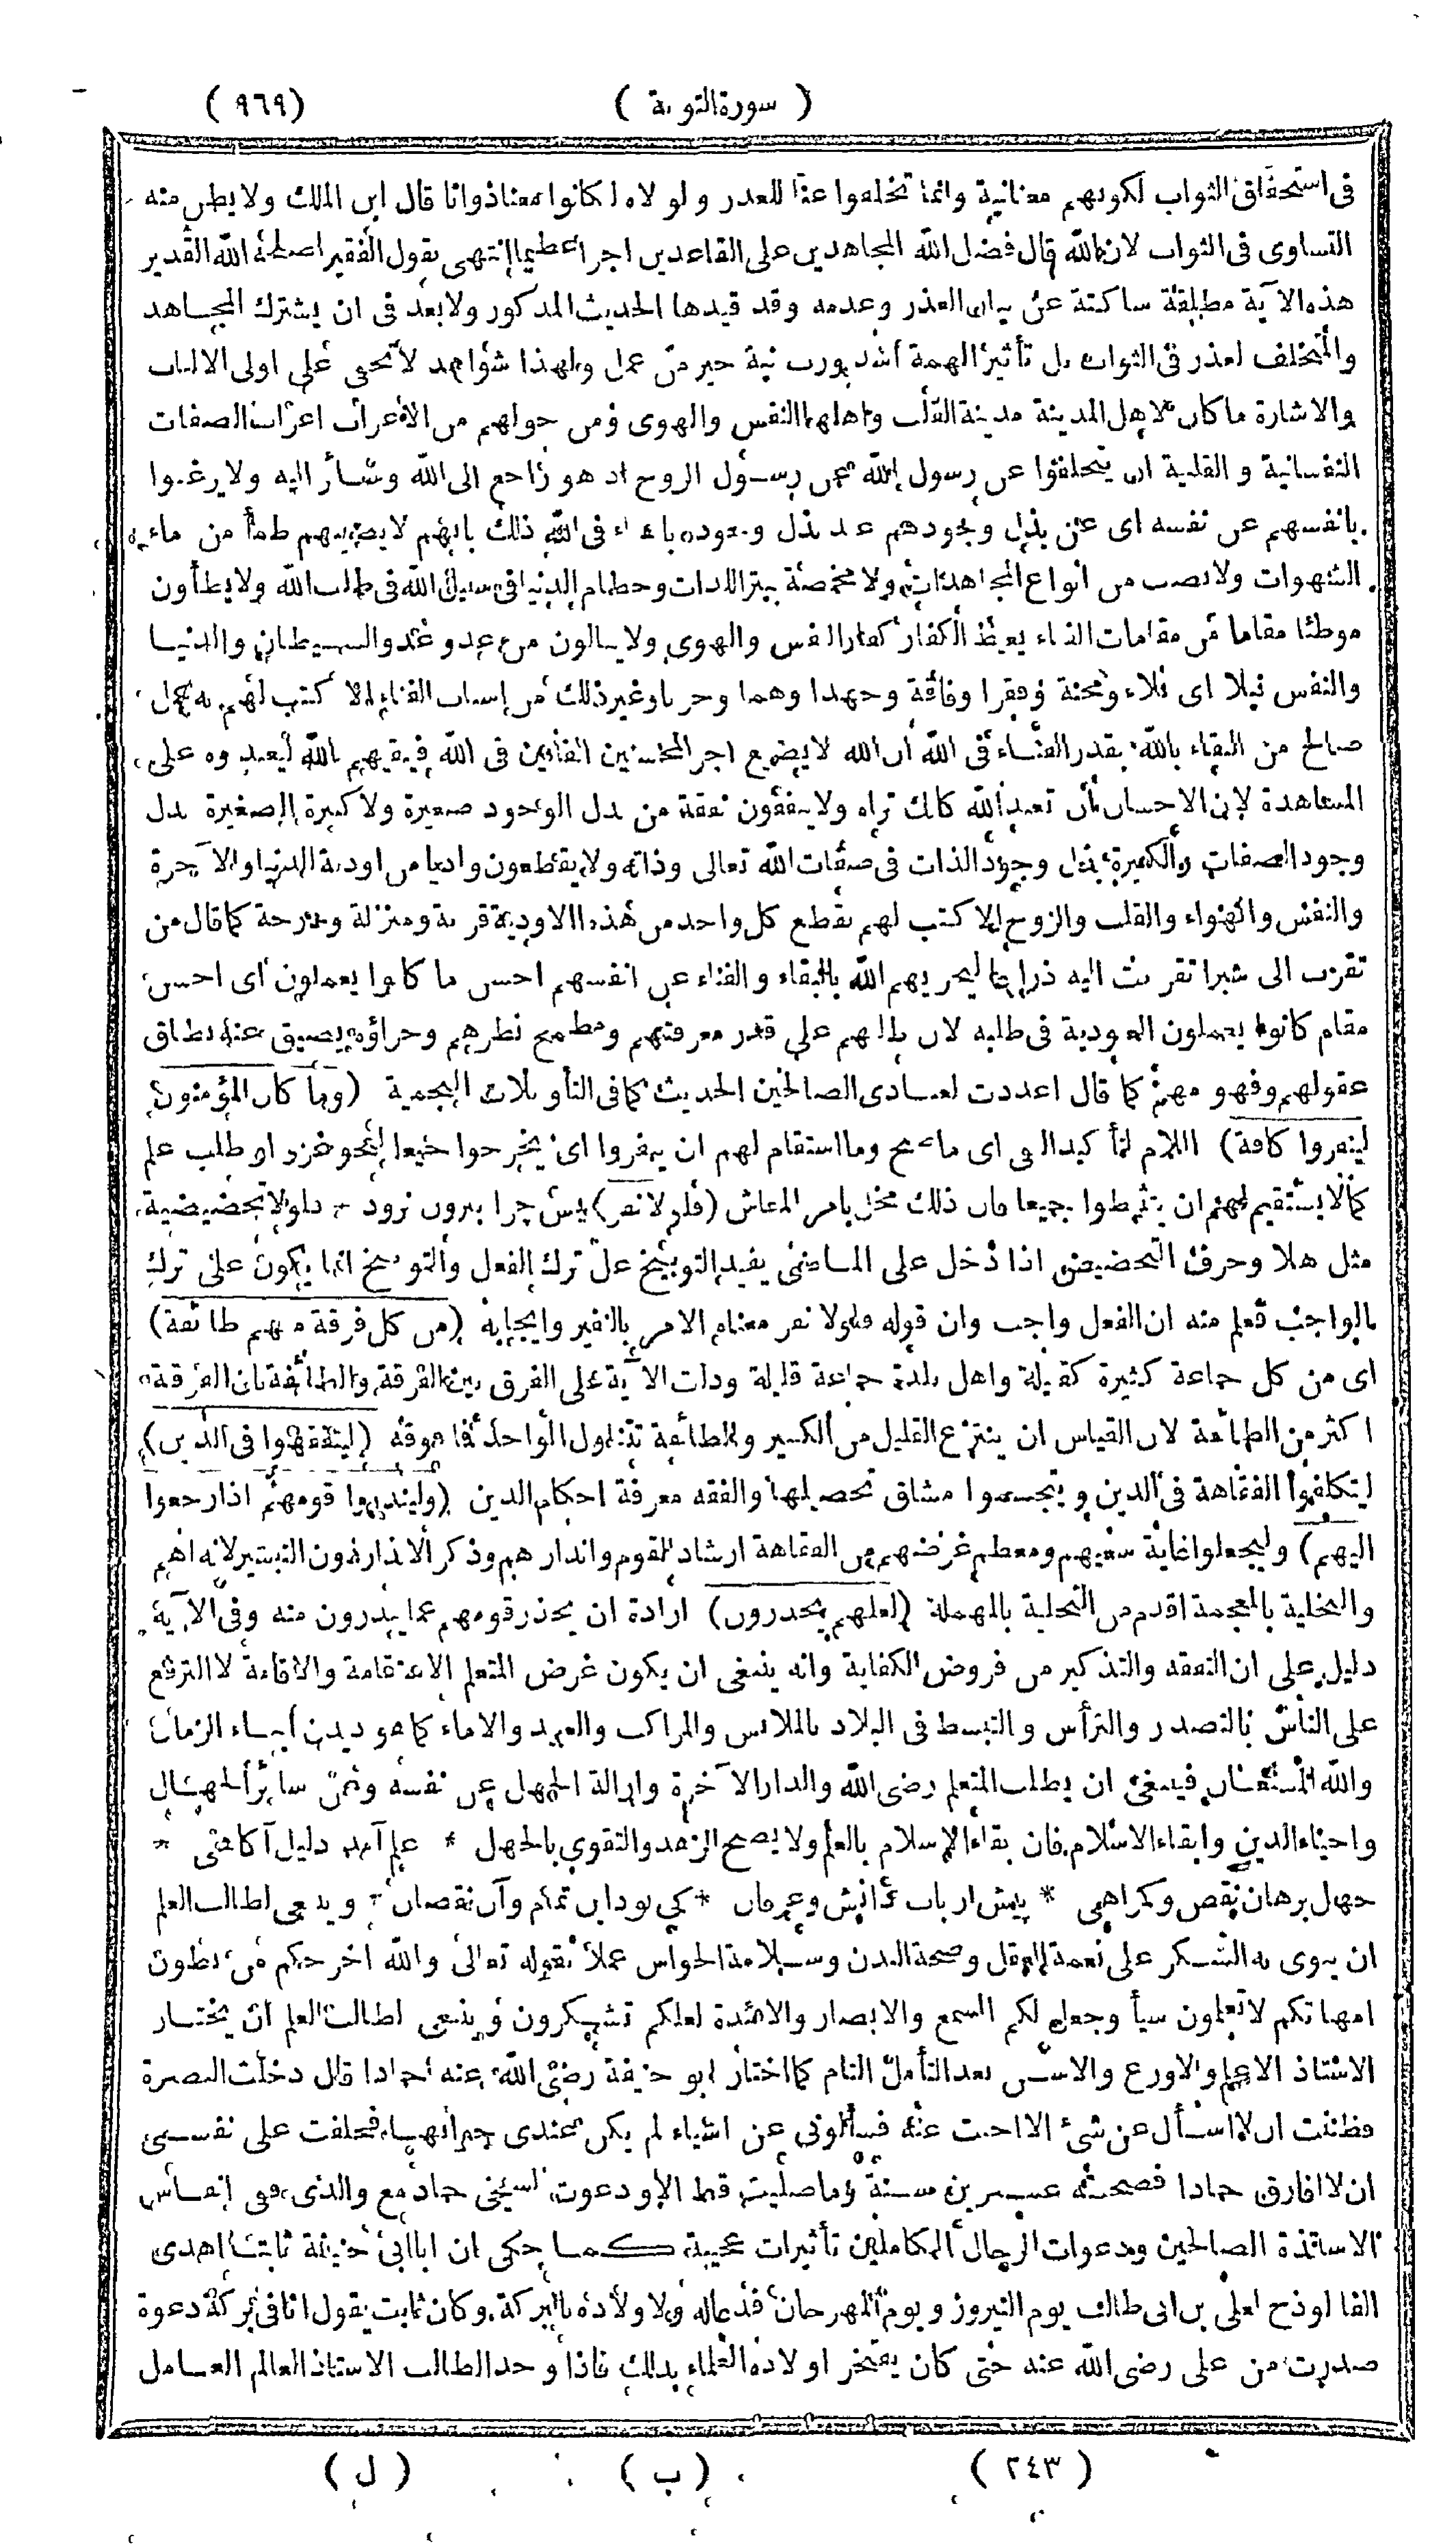 ( سورة التوبة ) ( ٩٦٩ )
فى استحقاق الثواب لكونهم معنا نية وانما تخلفوا عنا للعذر ولولاه لكانوا معنا ذواتا قال ابن الملك ولا يظن منه
التساوى فى الثواب لان الله قال فضل الله المجاهدين على القاعدين اجرا عظيما انتهى يقول الفقير اصلحه الله القدير
هذه الآية مطلقة ساكتة عن بيان العذر وعدمه وقد قيدها الحديث المذكور ولا بعد فى ان يشترك المجاهد
والمتخلف لعذر فى الثواب بل تأثير الهمة اشد ورب نية خير من عمل ولهذا شواهد لا تخفى على اولى الالباب
والاشارة ما كان لاهل المدينة مدينة القلب واهلها النفس والهوى ومن حولهم من الاعراب اعراب الصفات
النفسانية والقلبية ان يتخلفوا عن رسول الله عن رسول الروح اذ هو راجع الى الله وسائر اليه ولا يرغبوا
بانفسهم عن نفسه اى عن بذل وجودهم عند بذل وجوده بالفناء فى الله ذلك بانهم لا يصيبهم ظمأ من ماء
الشهوات ولا نصب من انواع المجاهدات ولا مخمصة بترك اللذات وحطام الدنيا فى سبيل الله فى طلب الله ولا يطأون
موطئا مقاما من مقامات الفناء يغيظ الكفار كفار النفس والهوى ولا ينالون من عدو عدو الشيطان والدنيا
والنفس نيلا اى بلاء ومحنة وفقرا وفاقة وجهدا وهما وحزنا وغير ذلك من اسباب الفناء الا كتب لهم به عمل
صالح من البقاء بالله بقدر الفناء فى الله ان الله لا يضيع اجر المحسنين الفانين فى الله فيبقيهم بالله ليعبدوه على
المشاهدة لان الاحسان ان تعبد الله كانك تراه ولا ينفقون نفقة من بذل الوجود صغيرة ولا كبيرة الصغيرة بذل
وجود الصفات والكبيرة بذل وجود الذات فى صفات الله تعالى وذاته ولا يقطعون واديا من اودية الدنيا والآخرة
والنفس والهواء والقلب والروح الا كتب لهم بقطع كل واحد من هذه الاودية قربة ومنزلة ودرجة كما قال من
تقرب الى شبرا تقربت اليه ذراعا ليجزيهم الله بالبقاء والفناء عن انفسهم احسن ما كانوا يعملون اى احسن
مقام كانوا يعملون العبودية فى طلبه لان طلبهم على قدر معرفتهم ومطمح نظرهم وجزاؤه يضيق عنه نطاق
عقولهم وفهومهم كما قال اعددت لعبادى الصالحين الحديث كما فى التأويلات النجمية ﴿وما كان المؤمنون
لينفروا كافة﴾ اللام لتأكيد النفى اى ما صح وما استقام لهم ان ينفروا اى يخرجوا جميعا لنحو غزو او طلب علم
كما لا يستقيم لهم ان يتثبطوا جميعا فان ذلك مخل بامر المعاش ﴿فلولا نفر﴾ پس چرا بيرون نرود - فلولا تحضيضية
مثل هلا وحرف التحضيض اذا دخل على الماضى يفيد التوبيخ على ترك الفعل والتوبيخ انما يكون على ترك
الواجب فعلم منه ان الفعل واجب وان قوله فلولا نفر معناه الامر بالنفير وايجابه ﴿من كل فرقة منهم طائفة﴾
اى من كل جماعة كثيرة كقبيلة واهل بلدة جماعة قليلة ودلت الآية على الفرق بين الفرقة والطائفة بان الفرقة
اكثر من الطائفة لان القياس ان ينتزع القليل من الكثير والطائفة تتناول الواحد فما فوقه ﴿ليتفقهوا فى الدين﴾
ليتكلفوا الفقاهة فى الدين ويتجشموا مشاق تحصيلها والفقه معرفة احكام الدين ﴿ولينذروا قومهم اذا رجعوا
اليهم﴾ وليجعلوا غاية سعيهم ومعظم غرضهم من الفقاهة ارشاد القوم وانذارهم وذكر الانذار دون التبشير لانه اهم
والتخلية بالمعجمة اقدم من التحلية بالمهملة ﴿لعلهم يحذرون﴾ ارادة ان يحذر قومهم عما ينذرون منه وفى الآية
دليل على ان التفقه والتذكير من فروض الكفاية وانه ينبغى ان يكون غرض المتعلم الاستقامة والاقامة لا الترفع
على الناس بالتصدر والترأس والتبسط فى البلاد بالملابس والمراكب والعبيد والاماء كما هو ديدن ابناء الزمان
والله المستعان فينبغى ان يطلب المتعلم رضى الله والدار الآخرة وازالة الجهل عن نفسه وعن سائر الجهال
واحياء الدين وابقاء الاسلام فان بقاء الاسلام بالعلم ولا يصح الزهد والتقوى بالجهل * علم آمد دليل آكاهى *
جهل برهان نقص وكمراهى * پيش ارباب دانش وعرفان * كى بود اين تمام وآن نقصان - وينبغى لطالب العلم
ان ينوى به الشكر على نعمة العقل وصحة البدن وسلامة الحواس عملا بقوله تعالى والله اخرجكم من بطون
امهاتكم لا تعلمون شيأ وجعل لكم السمع والابصار والافئدة لعلكم تشكرون وينبغى لطالب العلم ان يختار
الاستاذ الاعلم والاورع والاسن بعد التأمل التام كما اختار ابو حنيفة رضى الله عنه حمادا قال دخلت البصرة
فظننت ان لا اسأل عن شئ الا اجبت عنه فسألونى عن اشياء لم يكن عندى جوابها فحلفت على نفسى
ان لا افارق حمادا فصحبته عشرين سنة وما صليت قط الا ودعوت لشيخى حماد مع والدى وفى انفاس
الاساتذة الصالحين ودعوات الرجال الكاملين تأثيرات عجيبة كما حكى ان ابا ابى حنيفة ثابتا اهدى
الفالوذج لعلى بن ابى طالب يوم النيروز ويوم المهرجان فدعا له ولاولاده بالبركة وكان ثابت يقول انا فى بركة دعوة
صدرت من على رضى الله عنه حتى كان يفتخر اولاده العلماء بذلك فاذا وجد الطالب الاستاذ العالم العامل
( ٢٤٣ ) ( ب ) ( ل )